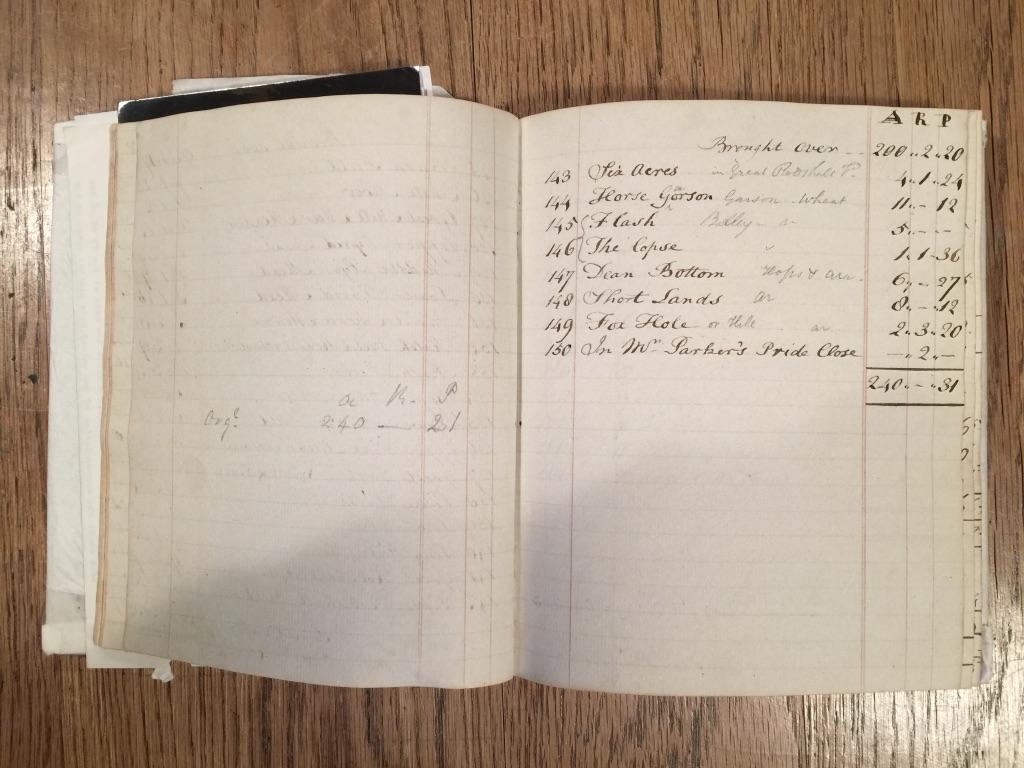 a R. P
240 — 21
A R P
Brought over 200 " 2 " 20
143 Six Acres in Great 4 " 1 " 24
144 Horse Gorson Garson Wheat 11 " - 12
145 Flash 5 " - -
146 The Copse 1 " 1 " 36
147 Dean Bottom Hops & ar 6 " - 27
148 Short Lands ar 8 " - 12
149 Fox Hole or Hill ar 2 " 3 " 20
150 In Mrs Parker's Pride Close - " 2 " -
240 " - " 31